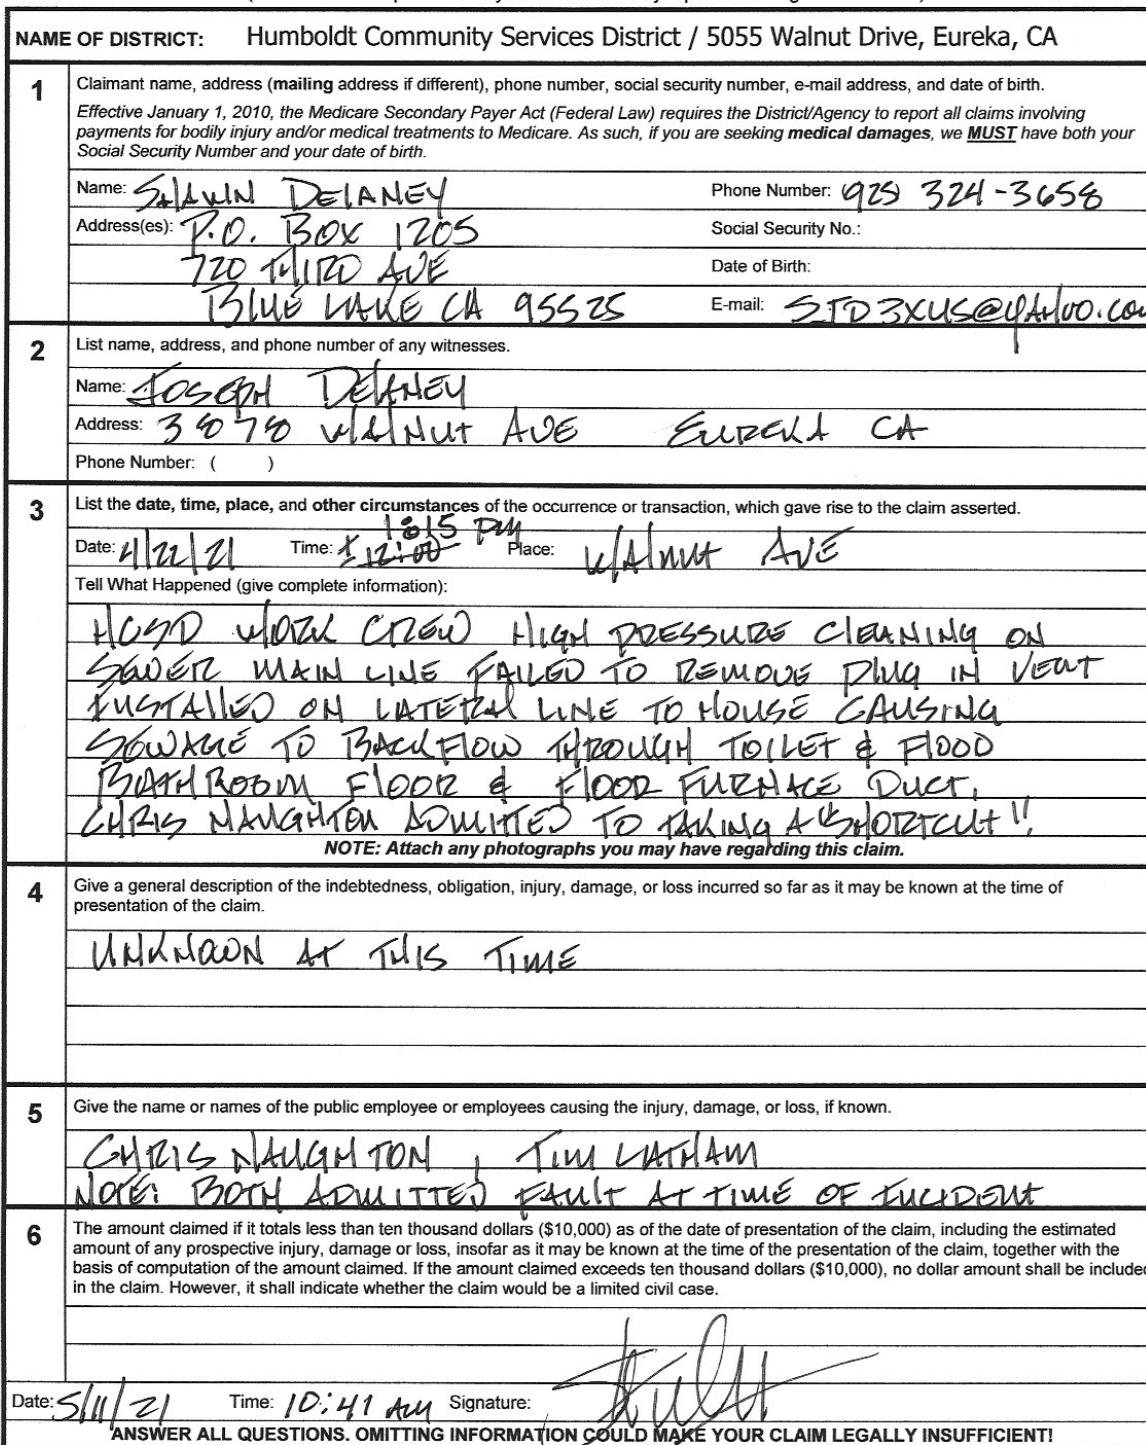 NAME OF DISTRICT: Humboldt Community Services District / 5055 Walnut Drive, Eureka, CA
1 Claimant name, address (mailing address if different), phone number, social security number, e-mail address, and date of birth.
Effective January 1, 2010, the Medicare Secondary Payer Act (Federal Law) requires the District/Agency to report all claims involving
payments for bodily injury and/or medical treatments to Medicare. As such, if you are seeking medical damages, we MUST have both your
Social Security Number and your date of birth.
Name: SHAWN DELANEY Phone Number: (925) 324-3658
Address(es): P.O. BOX 1205 Social Security No.:
720 THIRD AVE Date of Birth:
BLUE LAKE CA 95525 E-mail: STD3XUS@YAHOO.COM
2 List name, address, and phone number of any witnesses.
Name: JOSEPH DELANEY
Address: 3878 WALNUT AVE EUREKA CA
Phone Number: ( )
3 List the date, time, place, and other circumstances of the occurrence or transaction, which gave rise to the claim asserted.
1:15 PM
Date: 4/22/21 Time: ± 12:00 Place: WALNUT AVE
Tell What Happened (give complete information):
HCSD WORK CREW HIGH PRESSURE CLEANING ON
SEWER MAIN LINE FAILED TO REMOVE PLUG IN VENT
INSTALLED ON LATERAL LINE TO HOUSE CAUSING
SEWAGE TO BACKFLOW THROUGH TOILET & FLOOD
BATHROOM FLOOR & FLOOR FURNACE DUCT.
CHRIS NAUGHTON ADMITTED TO TAKING A "SHORTCUT"!!
NOTE: Attach any photographs you may have regarding this claim.
4 Give a general description of the indebtedness, obligation, injury, damage, or loss incurred so far as it may be known at the time of
presentation of the claim.
UNKNOWN AT THIS TIME
5 Give the name or names of the public employee or employees causing the injury, damage, or loss, if known.
CHRIS NAUGHTON, TIM LATHAM
NOTE: BOTH ADMITTED FAULT AT TIME OF INCIDENT
6 The amount claimed if it totals less than ten thousand dollars ($10,000) as of the date of presentation of the claim, including the estimated
amount of any prospective injury, damage or loss, insofar as it may be known at the time of the presentation of the claim, together with the
basis of computation of the amount claimed. If the amount claimed exceeds ten thousand dollars ($10,000), no dollar amount shall be included
in the claim. However, it shall indicate whether the claim would be a limited civil case.
Date: 5/11/21 Time: 10:41 AM Signature:
ANSWER ALL QUESTIONS. OMITTING INFORMATION COULD MAKE YOUR CLAIM LEGALLY INSUFFICIENT!